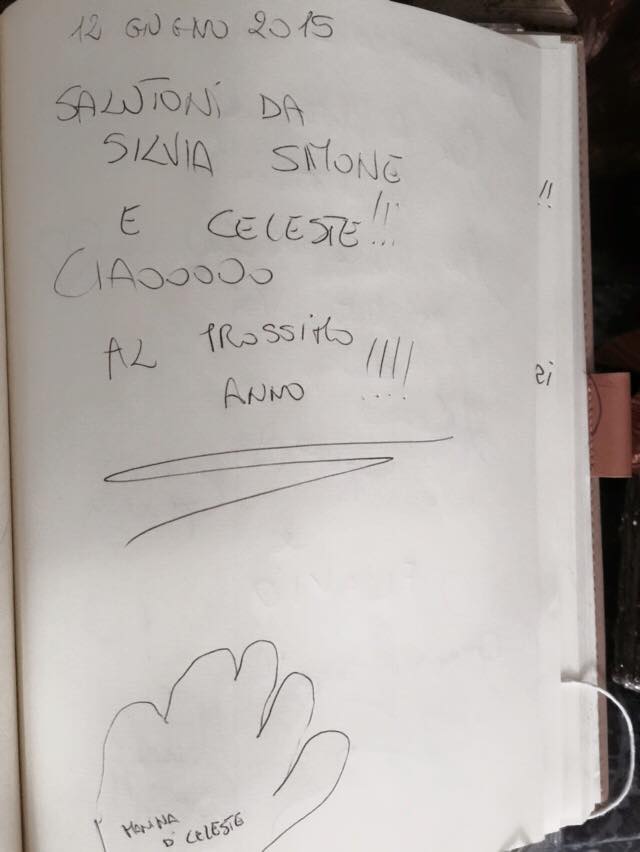 12 GIUGNO 2015
SALUTONI DA
SILVIA SIMONE
E CELESTE!!!
CIAOOOOO
AL PROSSIMO
ANNO !!!!
MANINA
D CELESTE
!!
ei